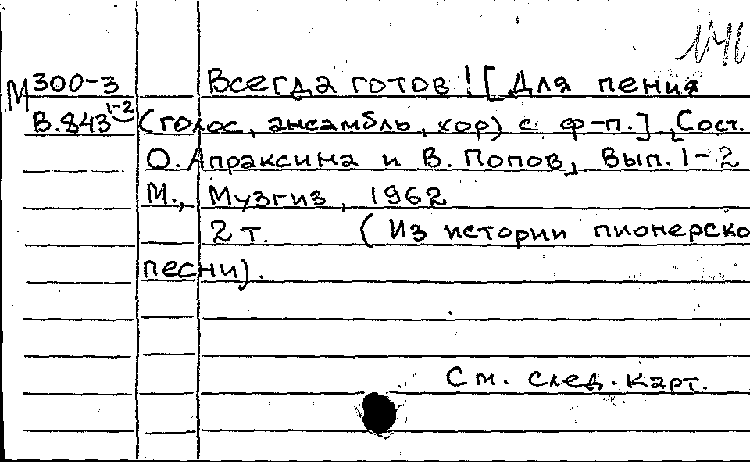 М 300-3 Всегда готов! [Для пения
В.843 1-2 (голос, ансамбль, хор) с ф-п.]. [Сост.
О. Апраксина и В. Попов], Вып. 1-2
М., Музгиз, 1962
2 т. (Из истории пионерско
песни).
См. след. карт.